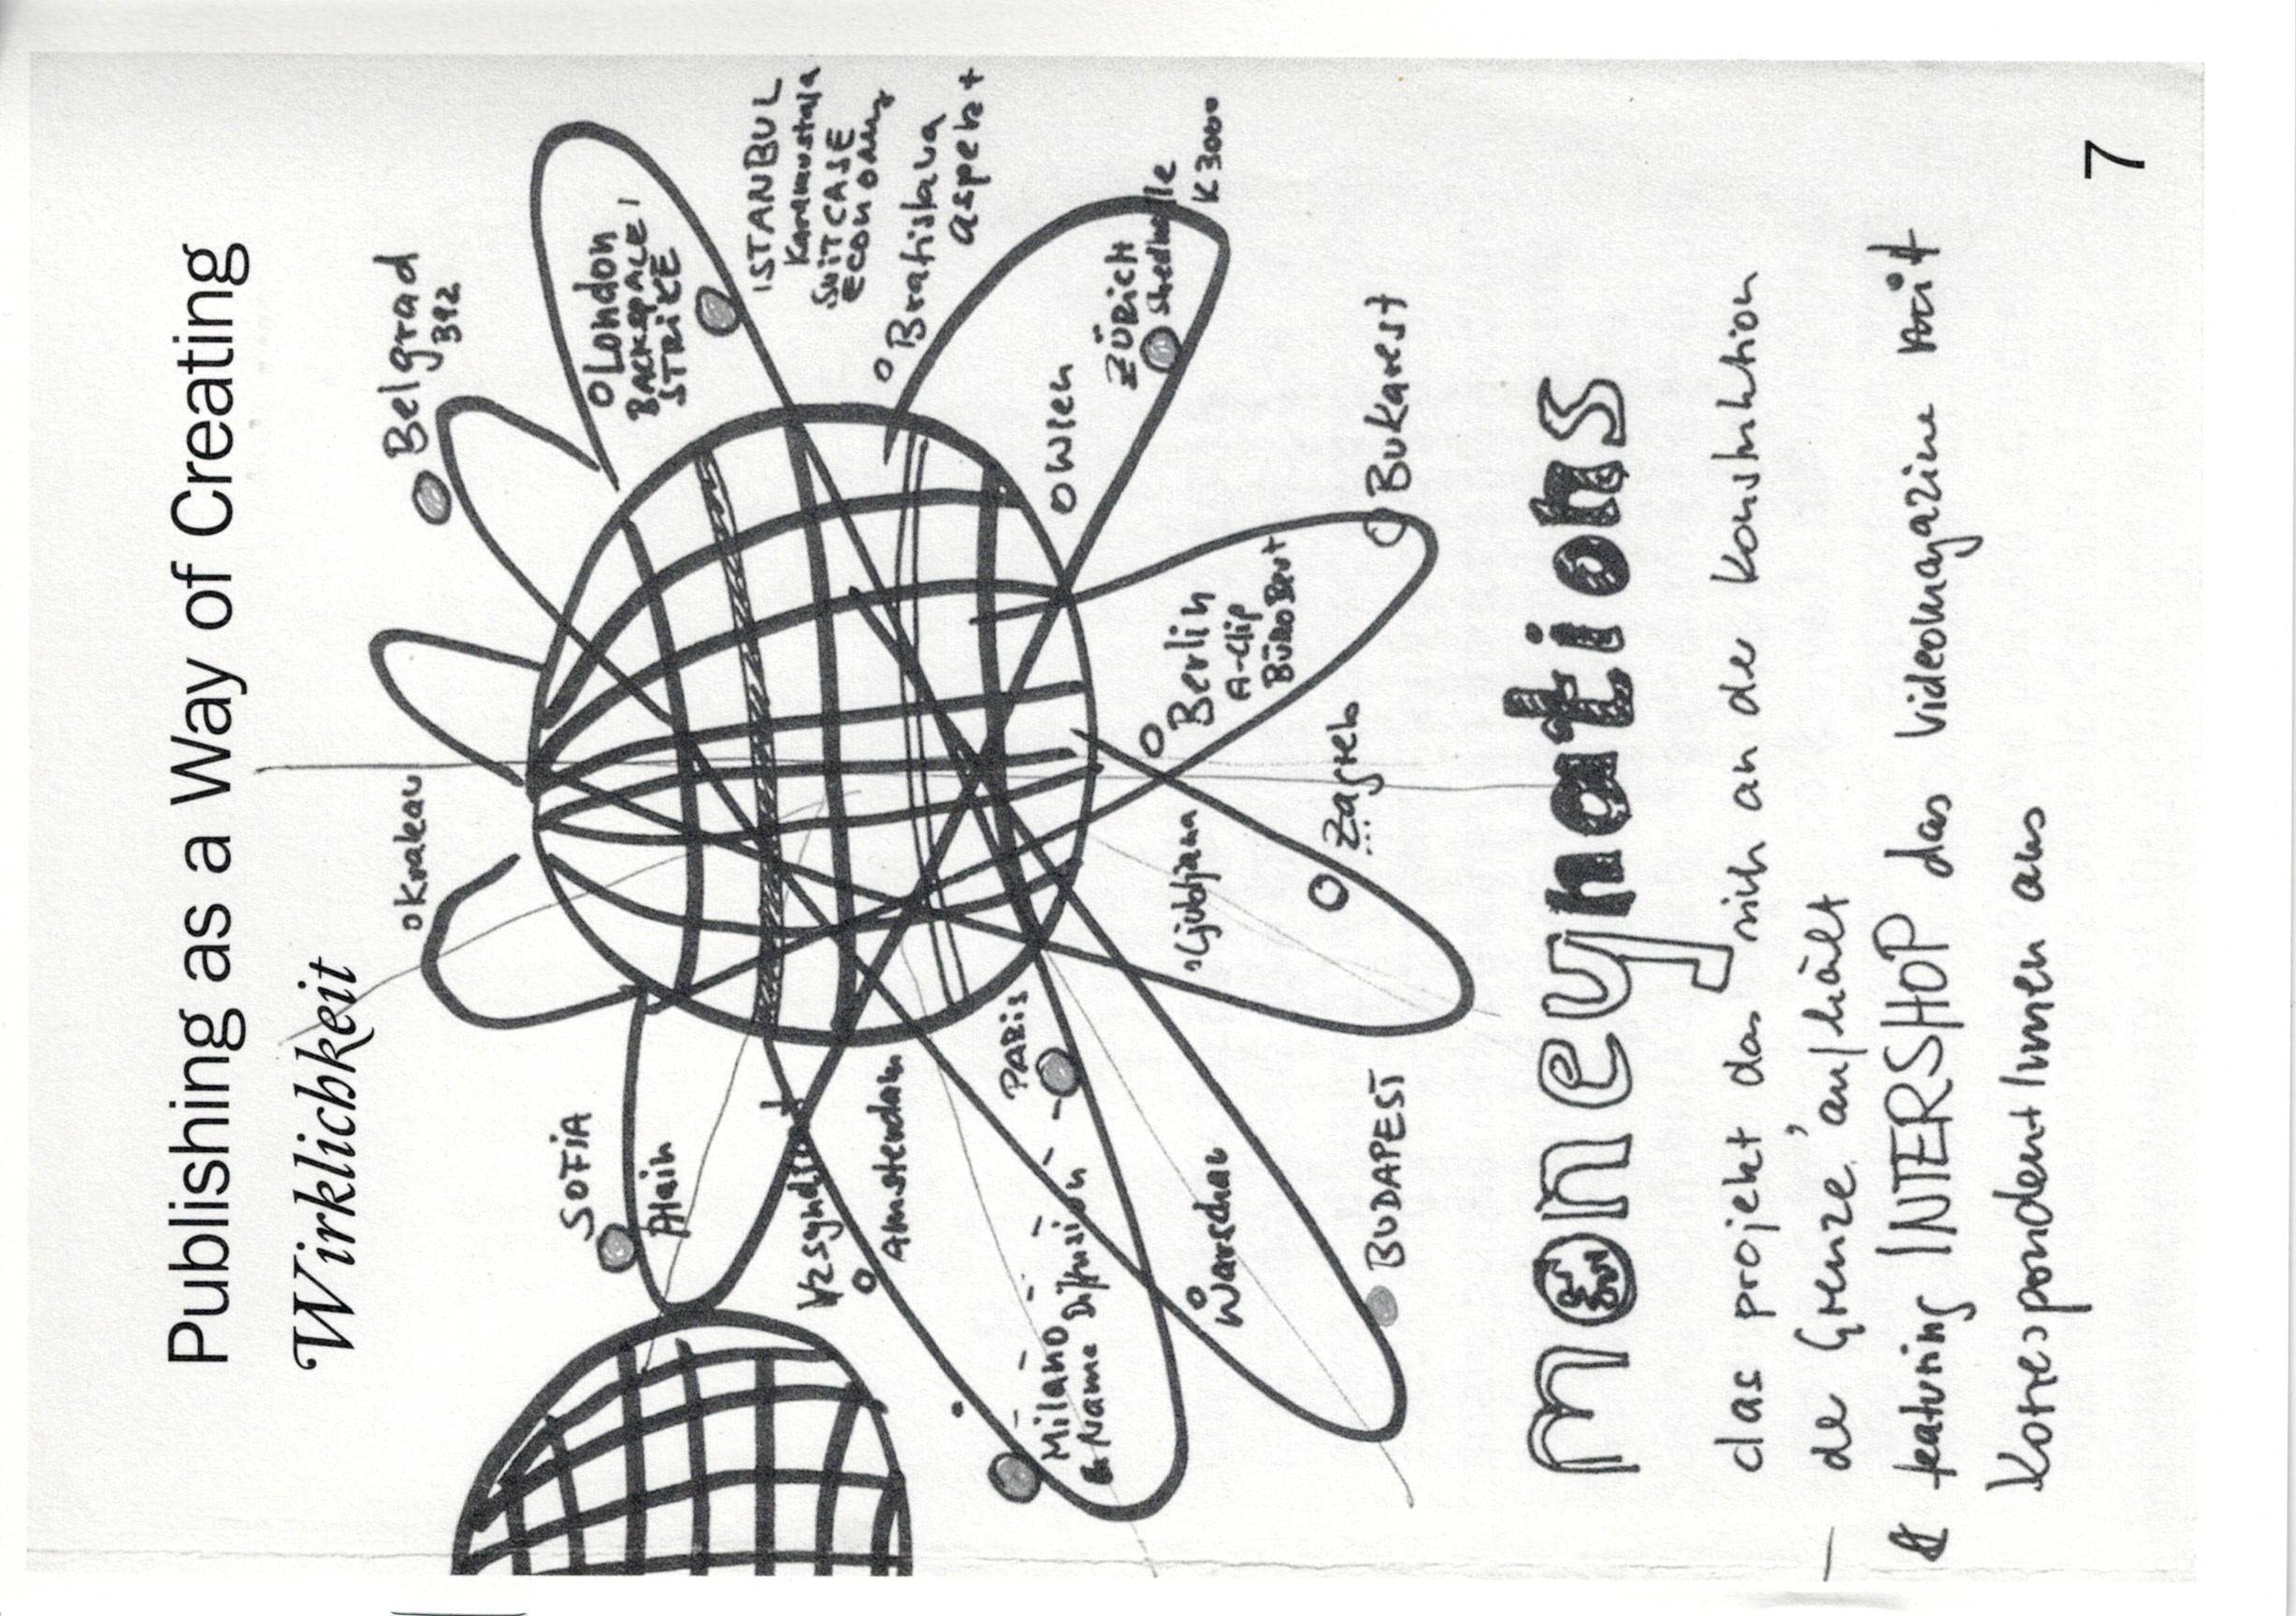 Publishing as a Way of Creating
Wirklichkeit
Belgrad
B92
London
BACKSPACE /
STRIKE
ISTANBUL
Karamustafa
SUITCASE
ECONOMY
Bratislava
aspekt
Krakau
Wien
ZÜRICH
Shedhalle
K3000
SOFIA
Alain
Amsterdam
PARIS
Berlin
A-Clip
BüroBert
Bukarest
Ljubljana
Zagreb
Milano
Name Diffusion
Warschau
BUDAPEST
moneynations
das projekt das sich an de Konstruktion
de Grenze 'aufhält
featuring INTERSHOP das Videomagazine mit
Korespondent/innen aus
7